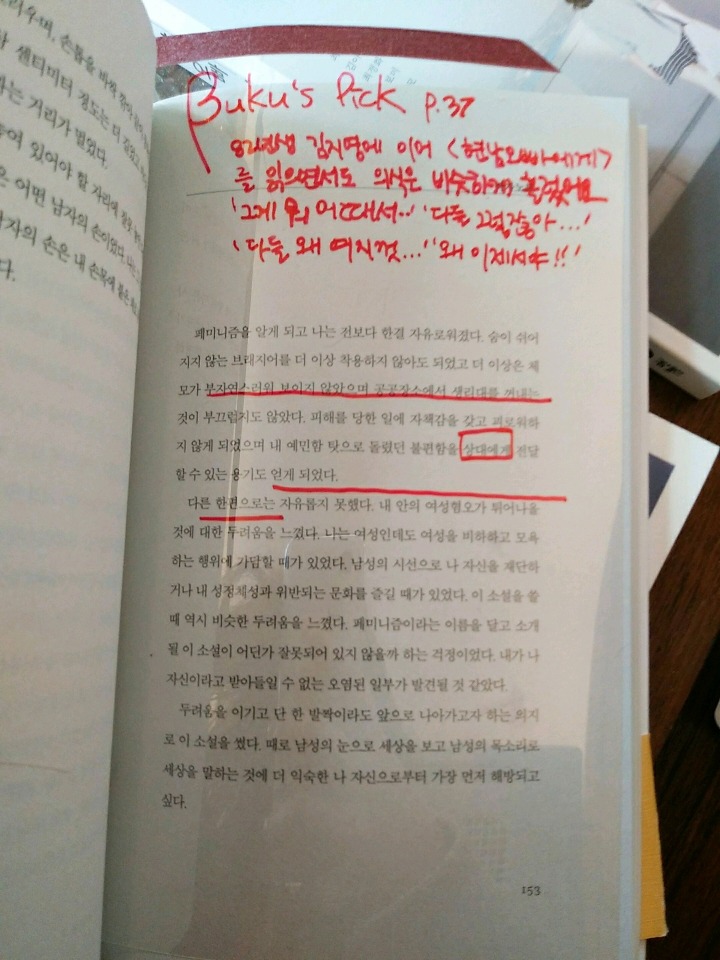 Buku's Pick p.37
82년생 김지영에 이어 <현남오빠에게>
를 읽으면서도 의식은 비슷하게 흘렀어요
'그게 뭐 어때서..' '다들 그런걸...'
'다들 왜 여지껏...' '왜 이제서야!!'
페미니즘을 알게 되고 나는 전보다 한결 자유로워졌다. 숨이 쉬어
지지 않는 브래지어를 더 이상 착용하지 않아도 되었고 더 이상은 제
모가 부자연스러워 보이지 않았으며 공공장소에서 생리대를 꺼내는
것이 부끄럽지도 않았다. 피해를 당한 일에 자책감을 갖고 괴로워하
지 않게 되었으며 내 예민함 탓으로 돌렸던 불편함을 상대에게 전달
할 수 있는 용기도 얻게 되었다.
다른 한편으로는 자유롭지 못했다. 내 안의 여성혐오가 튀어나올
것에 대한 두려움을 느꼈다. 나는 여성인데도 여성을 비하하고 모욕
하는 행위에 가담할 때가 있었다. 남성의 시선으로 나 자신을 재단하
거나 내 성정체성과 위반되는 문화를 즐길 때가 있었다. 이 소설을 쓸
때 역시 비슷한 두려움을 느꼈다. 페미니즘이라는 이름을 달고 소개
될 이 소설이 어딘가 잘못되어 있지 않을까 하는 걱정이었다. 내가 나
자신이라고 받아들일 수 없는 오염된 일부가 발견될 것 같았다.
두려움을 이기고 단 한 발짝이라도 앞으로 나아가고자 하는 의지
로 이 소설을 썼다. 때로 남성의 눈으로 세상을 보고 남성의 목소리로
세상을 말하는 것에 더 익숙한 나 자신으로부터 가장 먼저 해방되고
싶다.
153